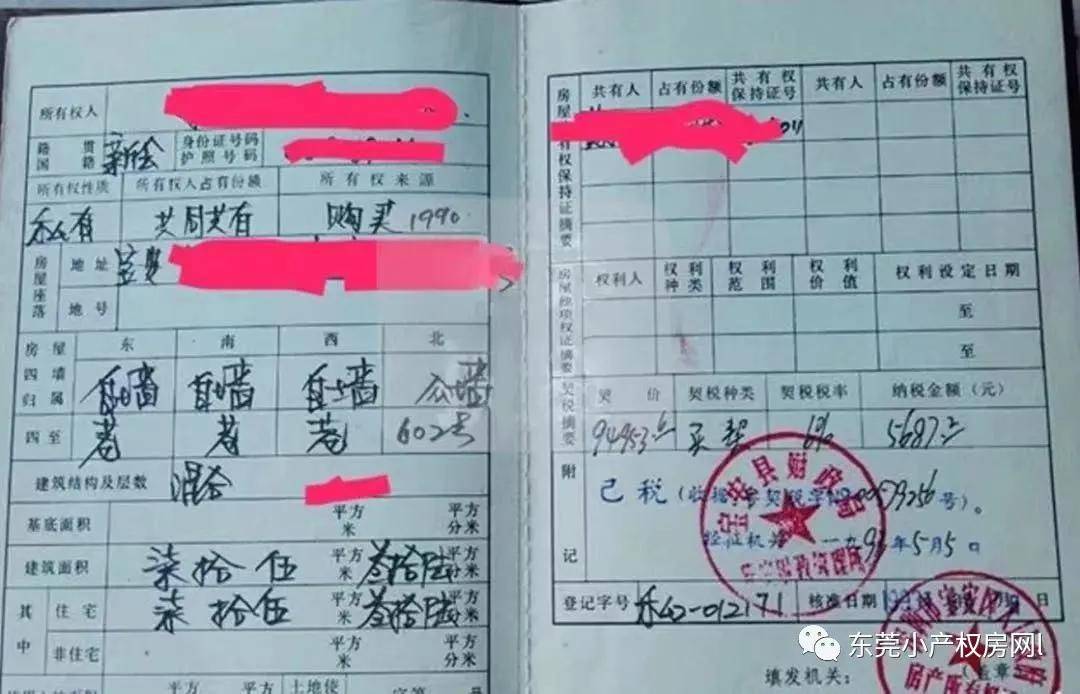 所有权人
籍贯 国籍 新会 身份证号码 护照号码
所有权性质 所有权人占有份额 所有权来源
私有 共同共有 购买1990
房屋座落 地址 宝安
地号
房屋 东 南 西 北
四墙归属 自墙 自墙 自墙
四至 巷 巷 巷 602号
建筑结构及层数 混合
基底面积 平方米 平方分米
建筑面积 柒拾伍 平方米 叁拾陆 平方分米
其中 住宅 柒拾伍 平方米 叁拾陆 平方分米
非住宅 平方米 平方分米
平方 平方 土地使
房屋 有权保持证摘要 共有人 占有份额 共有权保持证号 共有人 占有份额 共有权保持证号
房屋他项权证摘要 权利人 权利种类 权利范围 权利价值 权利设定日期
至
至
契税摘要 契价 契税种类 契税税率 纳税金额(元)
94953 买契 6% 5687
附记
已税(收据 契税字 号)。
验证机关 一九 年5月5日
宝安县财政局
登记字号 私02-012171 核准日期 日
填发机关: 盖章
东莞小产权房网